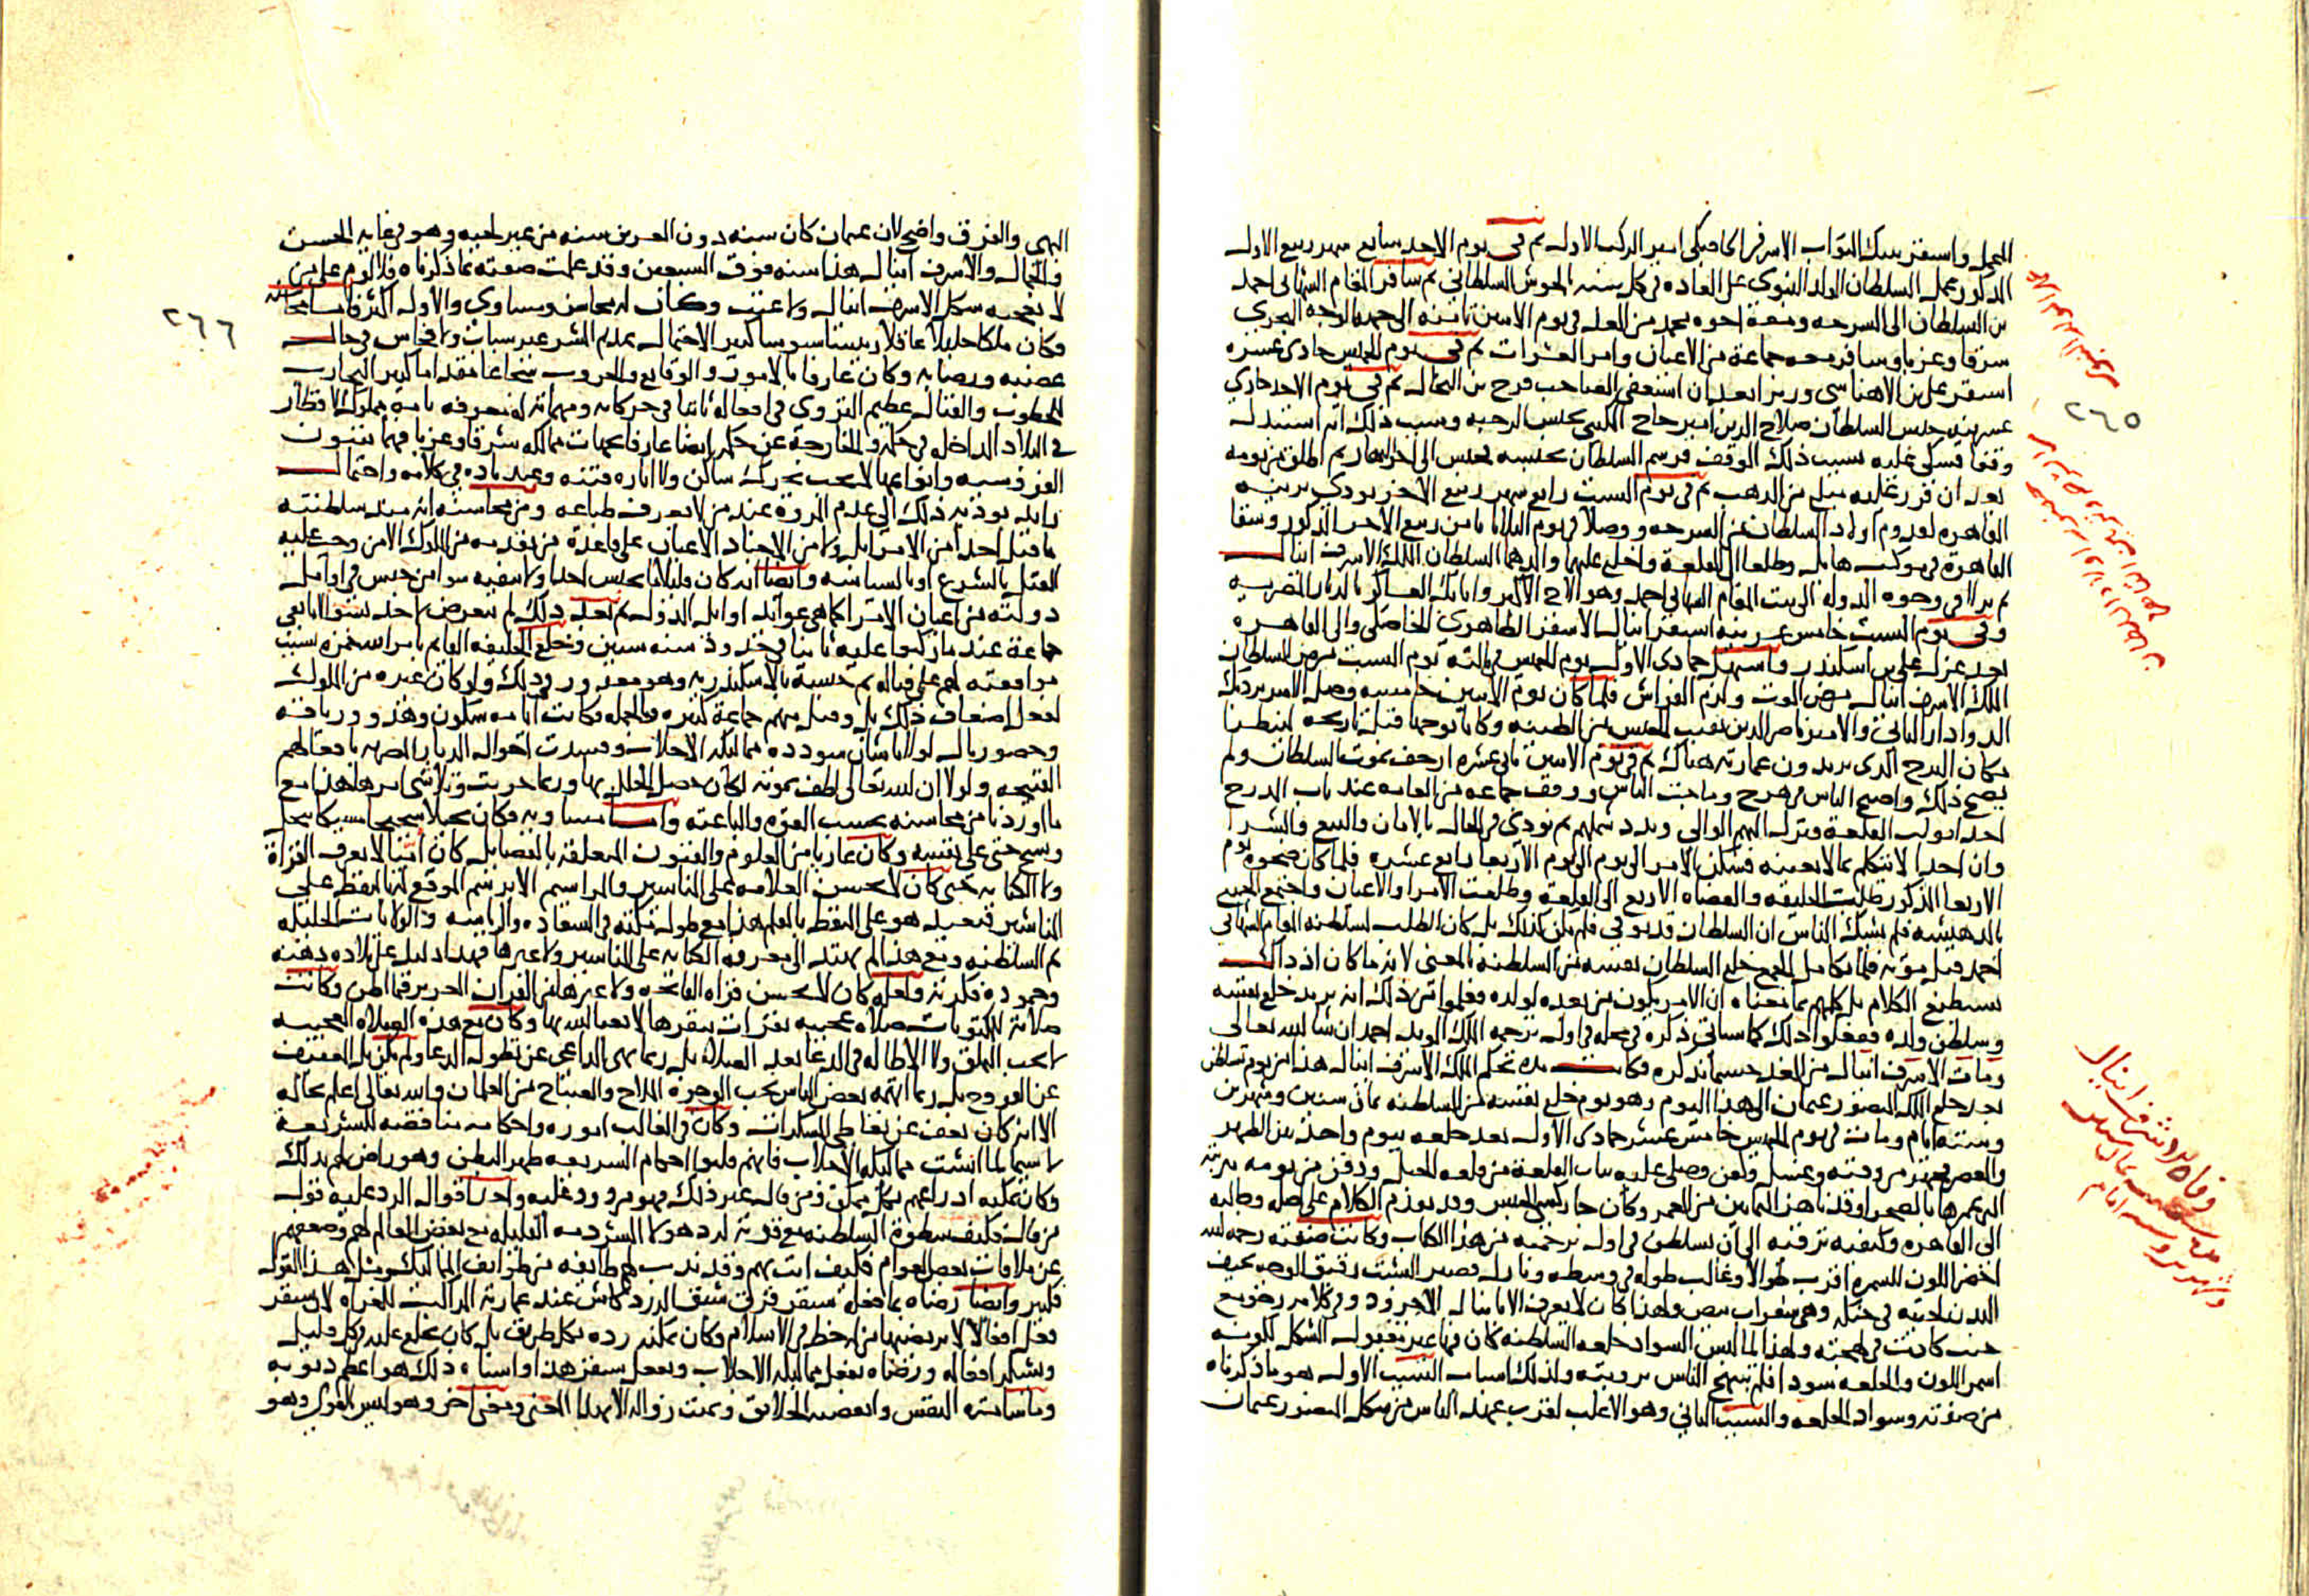 المحمل واستقر بيبك البواب الاشرفي الخاصكي امير الركب الاول ثم في يوم الاحد سابع شهر ربيع الاول
المذكور عمل السلطان المولد النبوي على العادة في كل سنة بالحوش السلطاني ثم سافر المقام الشهابي احمد
بن السلطان الى السرحة ومعه اخوه محمد من الغد في يوم الاثنين ثامنه الى جهة الوجه البحري
شرقا وغربا وسافر معه جماعة من الاعيان وامرا العشرات ثم في يوم الخميس حادي عشره
استقر علي بن الاهناسي وزيرا بعد ان استعفى الصاحب فرج بن النحال ثم في يوم الاحد حادي
عشرينه حبس السلطان صلاح الدين امير حاج المكيني بحبس الرحبة وسبب ذلك انه استبدل
وقفا فشكي عليه بسبب ذلك الوقف فرسم السلطان بحبسه فحبس الى اخر النهار ثم اطلق من يومه
بعد ان قرر عليه مبلغ من الذهب ثم في يوم السبت رابع شهر ربيع الاخر نودي بزينة
القاهرة لقدوم اولاد السلطان من السرحة ووصلا في يوم الثلاثا ثامن ربيع الاخر المذكور وشقا
القاهرة في موكب هايل وطلعا الى القلعة واخلع عليهما والدهما السلطان الملك الاشرف اينال
ثم نزلا في وجوه الدولة الى بيت المقام الشهابي احمد وهو الاخ الاكبر واتابك العساكر بالديار المصرية
وفي يوم السبت خامس عشرينه استقر اينال الاشقر الظاهري الخاصكي والي القاهرة
بعد عزل علي بن اسكندر واستهل جمادى الاولى يوم الخميس في ثالثه يوم السبت مرض السلطان
الملك الاشرف اينال مرض الموت ولزم الفراش فلما كان يوم الاثنين خامسه وصل الامير بردبك
الدوادار الثاني والامير ناصر الدين نقيب الجيش من الطينة وكانا توجها قبل تاريخه لينظرا
مكان البرج الذي يريدون عمارته هناك ثم في يوم الاثنين ثاني عشره ارجف بموت السلطان ولم
يصح ذلك واصبح الناس في هرج وماجت الناس ووقف جماعة من العامة عند باب المدرج
احد ابواب القلعة ونزل اليهم الوالي وبدد شملهم ثم نودي في الحال بالامان والبيع والشرا
وان احدا لا يتكلم بما لا يعنيه فسكن الامر اليوم الى يوم الاربعا رابع عشره فلما كان ضحوة يوم
الاربعا المذكور طلبت الخليفة والقضاه الاربع الى القلعة وطلعت الامرا والاعيان واجتمع الجميع
بالدهيشة فلم يشك الناس ان السلطان قد توفي فلم يكن كذلك بل كان الطلب لسلطنة المقام الشهابي
احمد قبل موته فلما تكامل الجمع خلع السلطان نفسه من السلطنة بالمعنى لانه ما كان اذ ذاك
يستطيع الكلام بل كلمهم بما معناه ان الامر يكون من بعده لولده ففهموا من ذلك انه يريد خلع نفسه
وسلطن ولده ففعلوا ذلك كما سياتي ذكره في محله في اول ترجمة الملك المويد احمد ان شا الله تعالى
ومات الاشرف اينال من الغد حسبما نذكره فكانت مدة تحكم الملك الاشرف اينال هذا من يوم تسلطن
بعد خلع الملك المنصور عثمان الى هذا اليوم وهو يوم خلع نفسه من السلطنة ثمان سنين وشهرين
وستة ايام ومات في يوم الخميس خامس عشر جمادى الاولى بعد خلعه بيوم واحد بين الظهر
والعصر فجهز من وقته وغسل وكفن وصلي عليه بباب القلعة من قلعة الجبل ودفن من يومه بتربته
التي عمرها بالصحرا وقد ناهز الثمانين من العمر وكان جاركسي الجنس وقد تقدم الكلام على اصله وجالبه
الى القاهرة وكيفية ترقيه الى ان تسلطن في اول ترجمته من هذا الكتاب وكانت صفته رحمه الله
اخضر اللون للسمرة اقرب طوالا وغالب طوله في وسطه ونازل قصير البشت رقيق الوجه نحيف
البدن لحيته في حنكه وهي شعرات بيض ولهذا كان لا يعرف الا باينال الاجرود وفي كلامه رخو مع
حنث كانت في لهجته ولهذا لما لبس السواد خلعة السلطنة كان فيها غير مقبول الشكل لكونه
اسمر اللون والخلعة سودا فلم تبتهج الناس برويته ولذلك اسباب السبب الاول هو ما ذكرناه
من صفرته وسواد الخلعة والسبب الثاني وهو الاغلب لقرب عهد الناس من شكل المنصور عثمان
٢٦٥
وفاة الاشرف اينال
البهي والفرق واضح لان عثمان كان سنه دون العشرين سنه من غير لحية وهو في غاية الحسن
والجمال والاشرف اينال هذا سنه فوق السبعين وقد علمت صفته مما ذكرناه فلا لوم على من
لا يعجبه شكل الاشرف اينال ولا عتب وكان له محاسن ومساوي والاول اكثر فاما محاسنه
وكان ملكا جليلا عاقلا رييسا سيوسا كثير الاحتمال عديم الشر غير سباب ولا فحاش في حال
غضبه ورضايه وكان عارفا بالامور والوقايع والحروب شجاعا مقداما كثير التجارب
للخطوب والقتال عظيم التروي في افعاله ثابتا في حركاته ومهماته له معرفة تامة بملوك الاقطار
في البلاد الداخلة في حكمه والخارجة عن حكمه ايضا عارفا بجهات ممالكه شرقا وغربا فهما بفنون
الفروسية وانواعها لا يحب تحرك ساكن ولا اثارة فتنة وعنده تؤدة في كلامه واحتمال
زايد يوديه ذلك الى عدم المروة عند من لا يعرف طباعه ومن محاسنه انه منذ سلطنته
ما قتل احدا من الامرا بل ولا من الاجناد الاعيان على قاعدة من تقدمه من الملوك الا من وجب عليه
القتل بالشرع او بالسياسة وايضا انه كان قليلا ما يحبس احدا ولا ينفيه سوا من حبس في اوايل
دولته من اعيان الامرا كما هي عوايد اوايل الدول ثم بعد ذلك لم يتعرض لاحد بسوء الا نفي
جماعة عند ما ركبوا عليه ثانيا في حدود سنة ستين وخلع الخليفة القايم بامر الله حمزة بسبب
موافقته لهم على قتاله ثم حبسه بالاسكندرية وهو معذور في ذلك ولو كان غيره من الملوك
لفعل اضعاف ذلك بل وقتل منهم جماعة كثيرة وبالجملة فكانت ايامه سكون وهدو ورياقة
وحضور بال لولا ما شان سودده مماليكه الاجلاب وفسدت احوال الديار المصرية بافعالهم
القبيحة ولولا ان الله تعالى لطف بموته لكان حصل الخلل بها وربما خربت وتلاشى امرها هذا مع
ما اوردنا من محاسنه بحسب القوة والباعثة واما مساويه فكان بخيلا شحيحا مسيكا يبخل
ويشح حتى على نفسه وكان عاريا من العلوم والفنون المتعلقة بالفضايل كان اميا لا يعرف القراة
ولا الكتابة حتى كان لا يحسن العلامة على المناشير والمراسم الا برسم الموقع له بالنقط على
المناشير فيعيد هو على النقط بالقلم هذا مع طول مكثه في السعادة والرياسة والولايات الجليلة
ثم السلطنة ومع هذا لم يهتد الى معرفة الكتابة على المناشير ولا غيرها فهذا دليل على بلادة ذهنه
وجمودة فكرته ولعله كان لا يحسن قراة الفاتحة ولا غيرها من القران العزيز فيما اظن وكانت
صلاته للمكتوبات صلاة عجيبة نقرات ينقرها لا يعبا الله بها وكان مع هذه الصلاة العجيبة
لا يحب الملق ولا الاطالة في الدعا بعد الصلاة بل ربما نهى الداعي عن تطويل الدعا ولم يكن بالعفيف
عن الفروج بل ربما اتهمه بعض الناس بحب الوجوه الملاح والصباح من الغلمان والله تعالى اعلم بحاله
الا انه كان يعف عن تعاطي المسكرات وكان في الغالب اموره واحكامه مناقضة للشريعة
لا سيما لما انشت مماليكه الاجلاب فانهم قلبوا احكام الشريعة ظهرا لبطن وهو راض لهم بذلك
وكان يمكنه ارداعهم بكل ممكن ومن قال غير ذلك فهو مردود عليه واحدا قوال الرد عليه قول
من قال فكيف بسطوة السلطنة مع قوته لرد هولا الشرذمة القليلة مع بعض العالم لهم وضعفهم
عن ملاقات بعض العوام فكيف انت بهم وقد ندب لهم طايفة من طوايف المماليك ومثل هذا القول
كثير وايضا رضاه بما فعله سنقر قرق شبق الزردكاش عند عمارته المراكب للغزاة لان سنقر
فعل افعالا لا يرتضيها من له حظ في الاسلام وكان يمكنه رده بكل طريق بل كان يخلع عليه في كل قليل
ويشكر افعاله ورضاه بفعل مماليكه الاجلاب وبفعل سنقر هذا واشباه ذلك هو اعظم ذنوبه
وما ساته النفس وابغضته الخلايق وتمنت زواله الا لهذا المعنى ومعنى اخر وهو ليس بالقوي وهو
٢٦٦